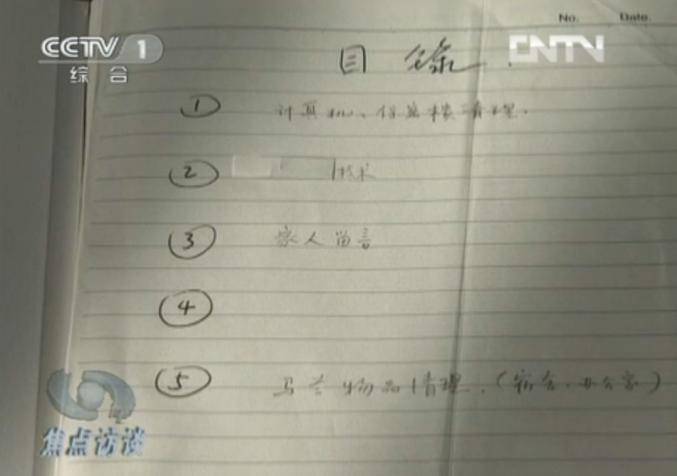 CCTV 1 综合
No. Date.
CNTV
目 録
① 计算机、保密柜清理.
② 技术
③ 家人留言
④
⑤ 马兰物品清理.(宿舍.办公室)
焦点访谈